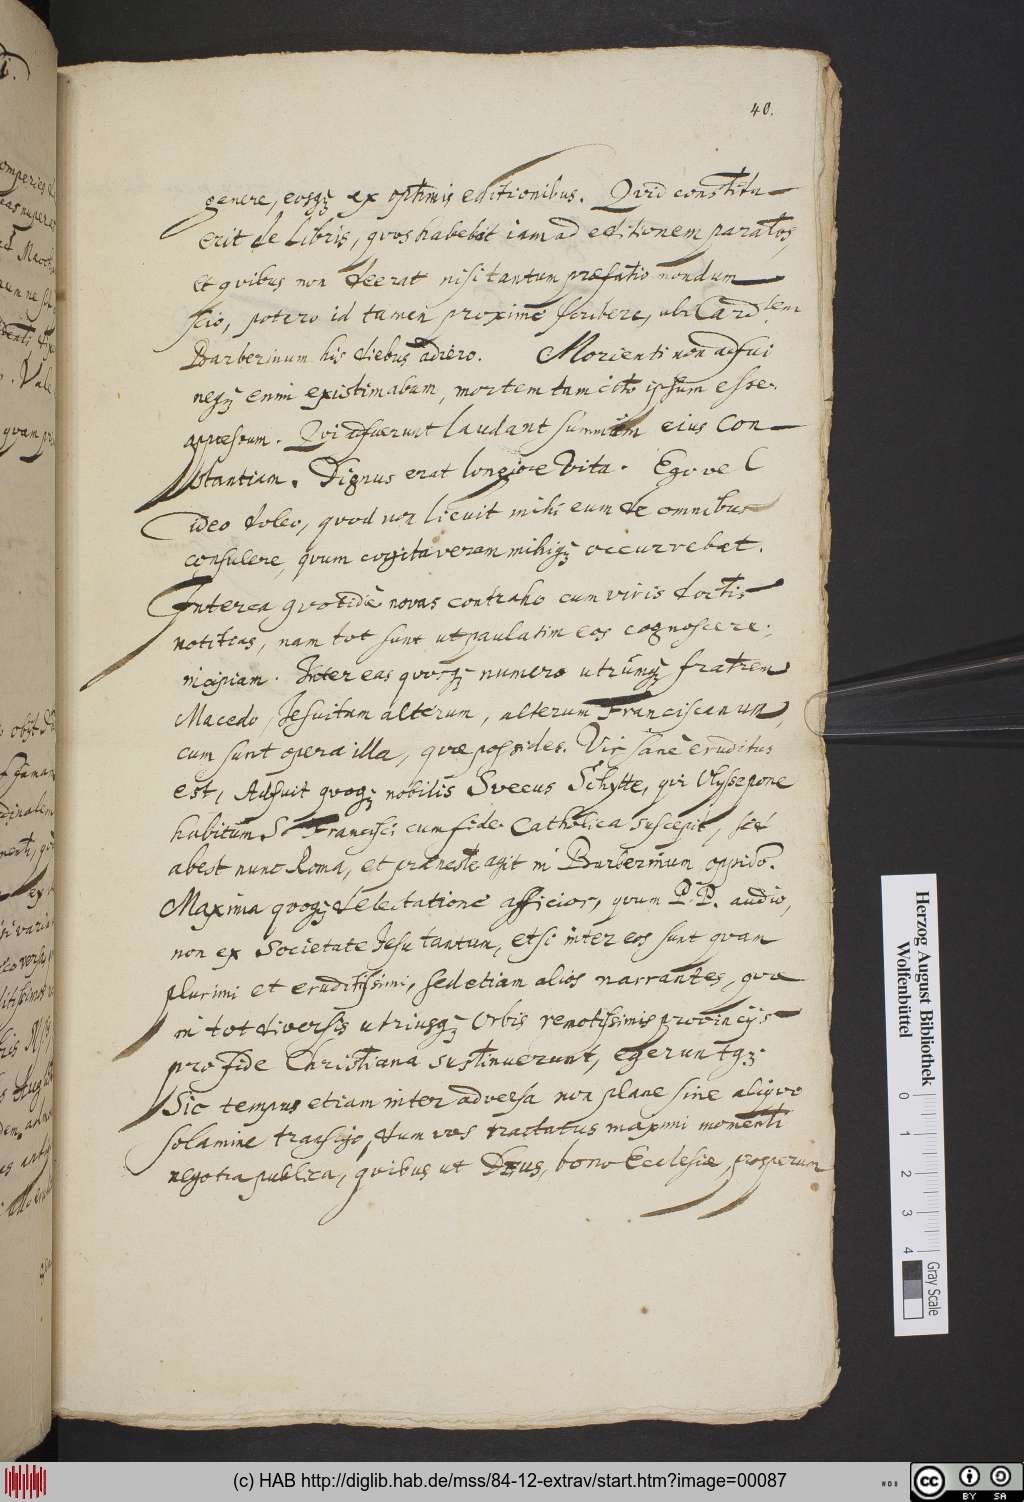 40.
genere, eosqꝫ ex optimis editionibus. Quid constitu-
erit de Libris, quos habebat iam ad editionem paratos,
et quibus non deerat nisi tantum præfatio nondum
scio, potero id tamen proximè scribere, ubi Cardlem
Barberinum his diebus adiero. Morienti non adfui
neqꝫ enim existimabam, mortem tam cito ipsum esse
appesum. Qui adfuerunt laudant summam eius Con-
stantiam. Dignus erat longiore Vita. Ego vel
ideo doleo, quod non licuit mihi eum de omnibus
consulere, quum cogitaveram mihiqꝫ occurrebat.
Interea quotidie novas contraho cum viris doctis
notitias, nam tot sunt ut paulatim eos cognoscere
incipiam. Inter eas quoqꝫ numero utrumqꝫ fratrem
Macedo, Jesuitam alterum, alterum Franciscanum,
cum sunt opera illa, quæ possides. Vir sanè eruditus
est, Adfuit quoqꝫ nobilis Svecus Schytte, qui Ulyssepone
habitum S. Francisci cum fide Catholica suscepit, sed
abest nunc Roma, et præneste agit in Barberinum oppido.
Maxima quoqꝫ delectatione afficior, quum P.P. audio,
non ex Societate Jesu tantum, etsi inter eos sunt quam
plurimi et eruditissimi, sed etiam alios narrantes, quæ
in tot diversis utriusqꝫ Orbis remotissimis provincijs
pro Fide Christiana sustinuerunt, egeruntqꝫ
Sic tempus etiam inter adversa non plane sine aliquo
solamine transigo, dum vos tractatus maximi momenti
negotia publica, quibus ut Deus, bono Ecclesiæ, prosperum
Herzog August Bibliothek
Wolfenbüttel
0 1 2 3 4
Gray Scale
(c) HAB http://diglib.hab.de/mss/84-12-extrav/start.htm?image=00087
WDB
CC BY SA